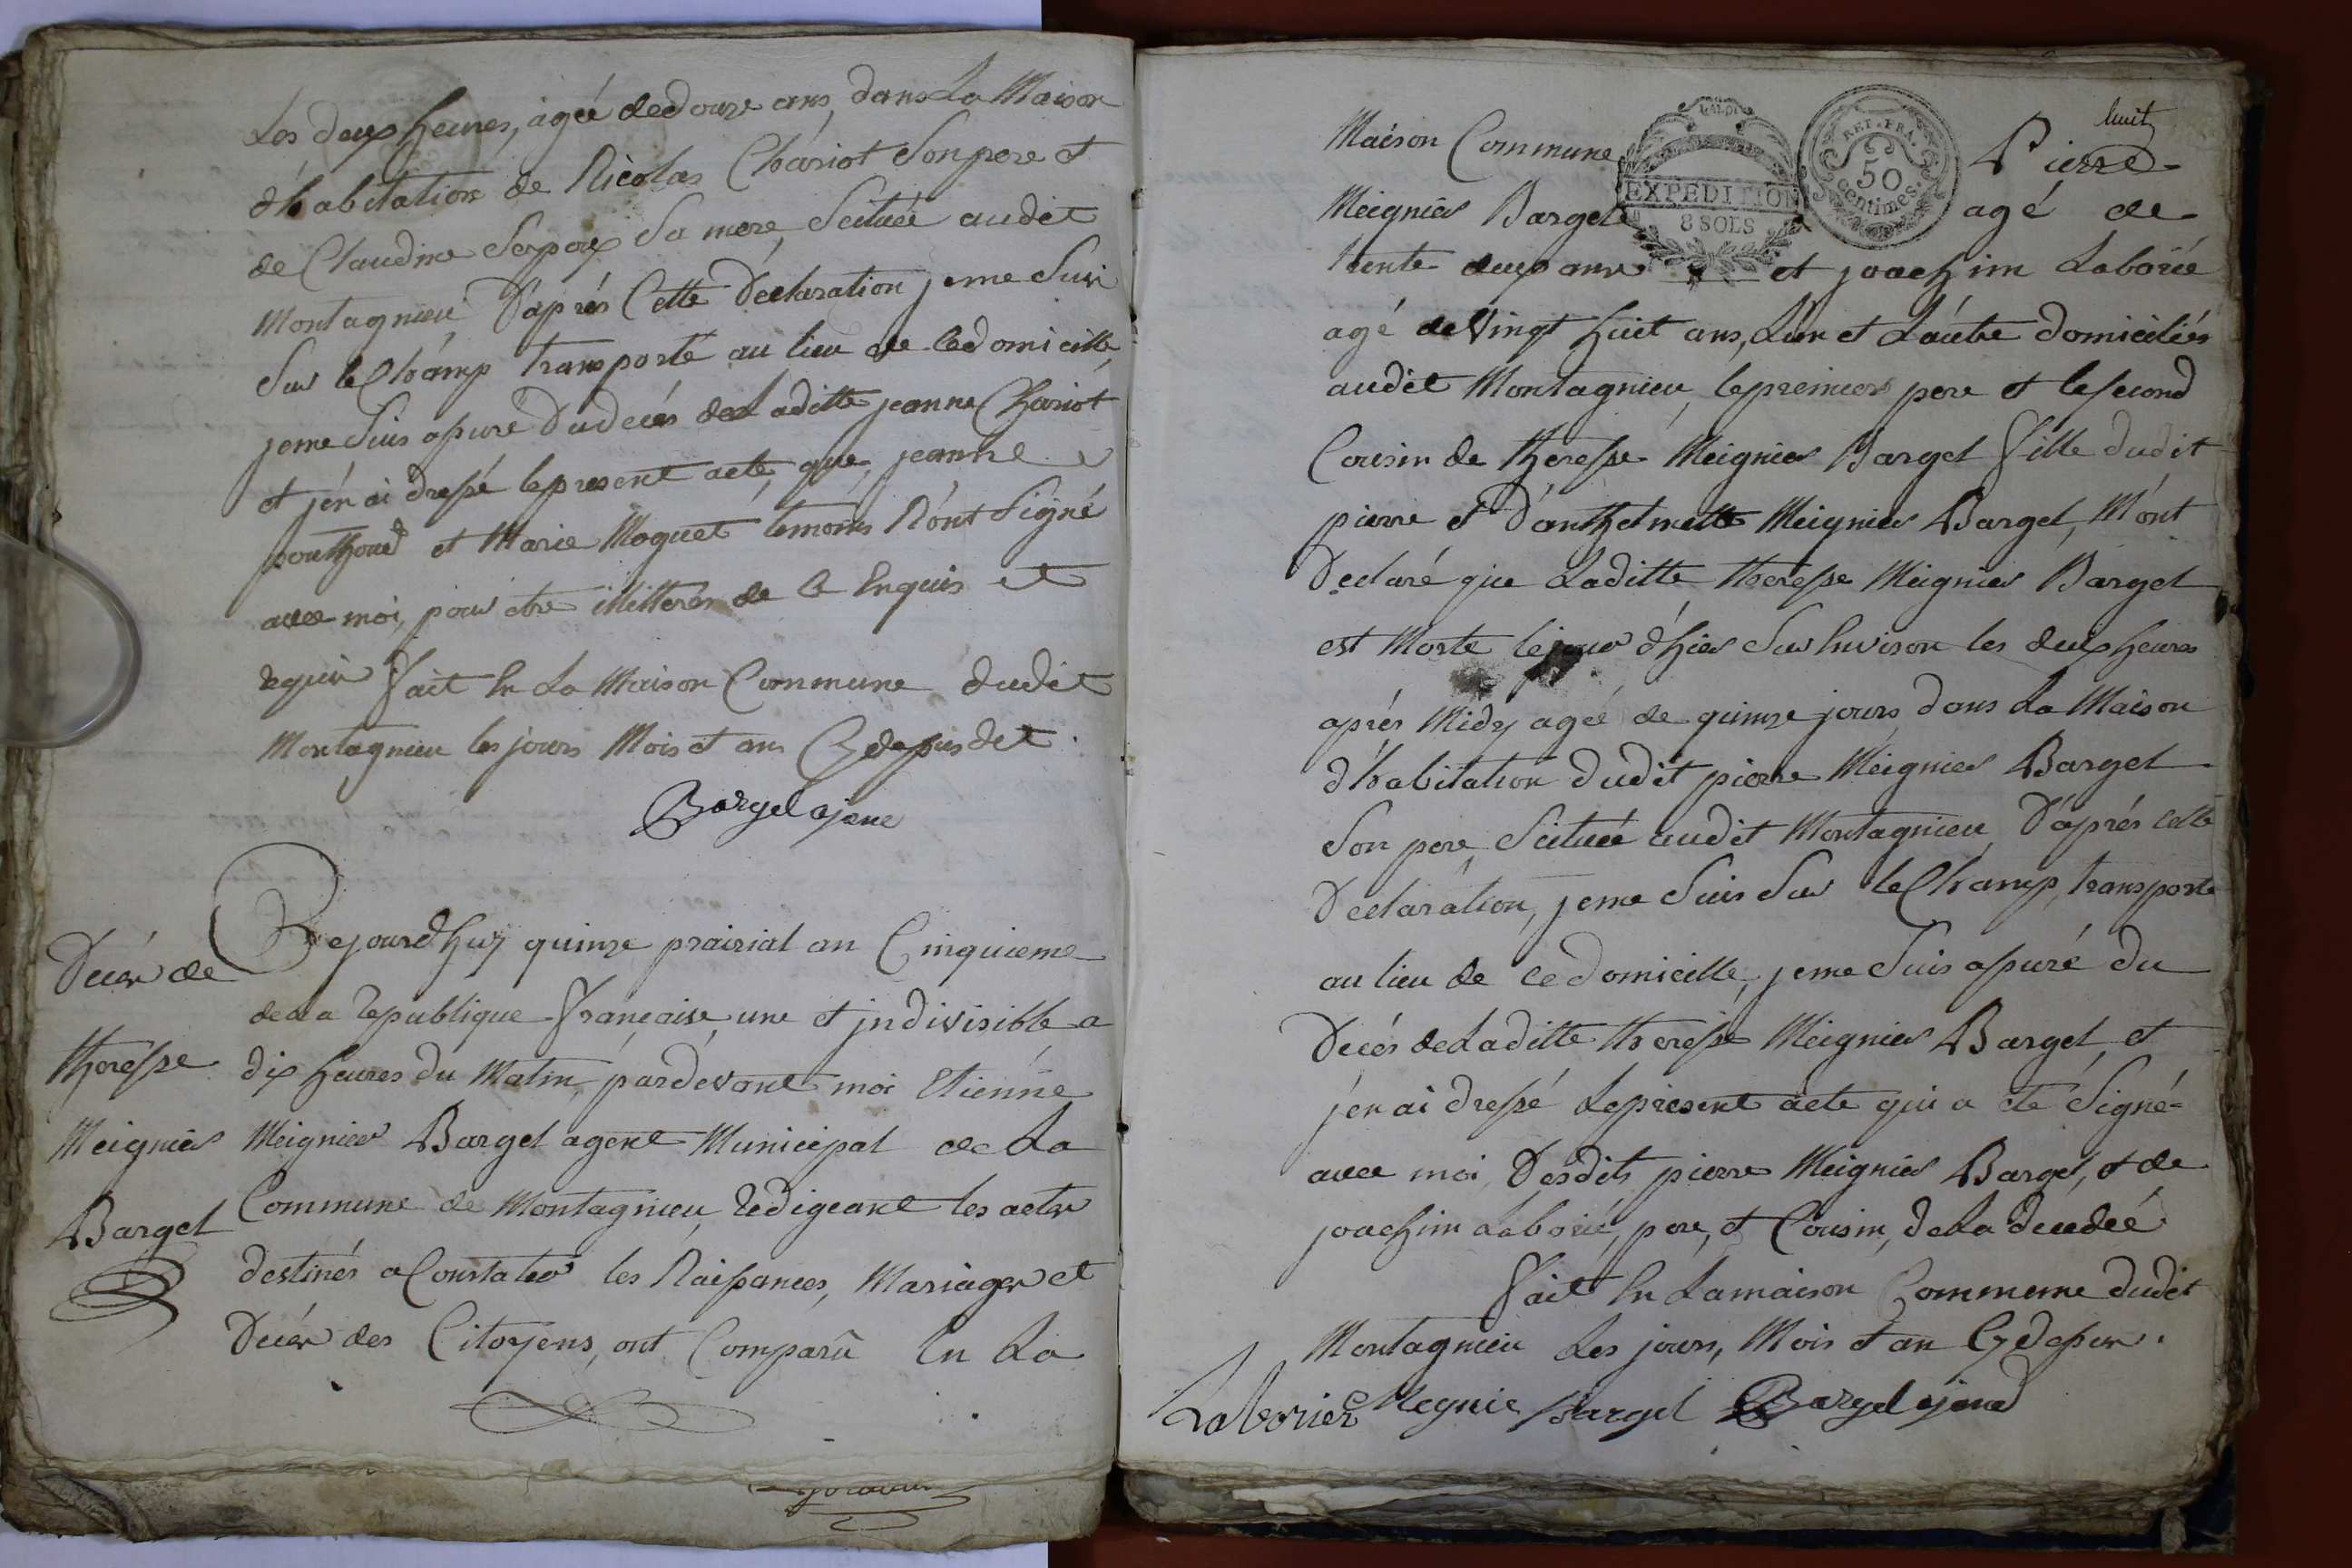 Les deux heures, agée de douze ans, dans La Maison
d'habitation de Nicolas Chariot Son pere et
de Claudine Serpox Sa mere, Scituée audit
Montagnieu D'aprés Cette Déclaration jeme Suis
Sur le Champ transporté au lieu de ce domicille,
jeme Suis assuré Du decés de Laditte jeanne Chariot
et j'en ai dressé le present acte, que jeanne
pouthoud et Marie Moguet temoins N'ont Signé
avec moi, pour etre illitterés de ce Enquis et
requis fait En La Maison Commune dudit
Montagnieu les jours Mois et ans Cy dessus dit.
Bargel ajant
Decés de
theresse
Meignier
Bargel
Cejourd'huy quinze prairial an Cinquieme
de La republique française, une et jndivisible a
dix heures du Matin, pardevant moi Etienne
Meignier Bargel agent Municipal de La
Commune de Montagnieu, redigeant les actes
destinés a Constater les Naissances, Mariages et
Decés des Citoyens, ont Comparû En La
huit
Maison Commune Pierre
EXPEDITION
8 SOLS
REP. FRA.
50
centimes.
Meignier Bargel agé de
trente deux ans et joachim Laborié
agé de Vingt huit ans, L'un et L'autre domiciliés
audit Montagnieu, le premier pere et le second
Cousin de theresse Meignier Bargel fille dudit
pierre et D'anthelmette Meignier Bargel, M'ont
Declaré que Laditte therese Meignier Bargel
est Morte le jour d'hier Sur Environ les deux heures
aprés Midy agée de quinze jours, dans La Maison
d'habitation dudit pierre Meignier Bargel
Son pere, Scituée audit Montagnieu, D'aprés cette
Declaration, jeme Suis Sur le Champ, transporté
au lieu de ce domicille, jeme Suis assuré du
Decés de Laditte therese Meignier Bargel, et
j'en ai dressé Le present acte qui a eté Signé
avec moi, Desdits pierre Meignier Bargel, et de
joachim Laborié, pere, et Cousin, de La decedée
fait En La maison Commune dudit
Montagnieu Les jours, Mois et an Cy dessus.
Laborier Megnie Bargel Bargel ajand